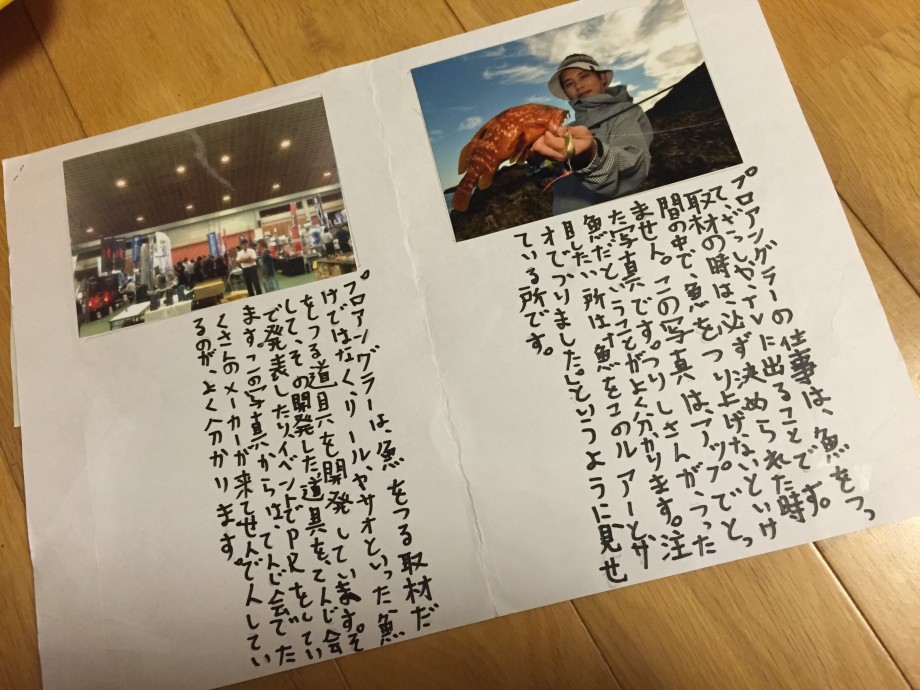 プロアングラーの仕事は、魚をつっ
て、ざっしや、TVに出ることです。
取材の時は、必ず決められた時
間の中で、魚をつり上げないといけ
ません。この写真は、アップでとっ
た写真です。つりしさんが、つった
魚だということがよく分かります。注
目したい所は、「魚をこのルアーと、サ
オでつりました」というように、見せ
ている所です。
プロアングラーは、魚をつる取材だ
けではなく、リールや、サオといった魚
をつる道具を開発しています。そ
して、その開発した道具を、てんじ会
で発表したり、イベントでPRをしてい
ます。この写真からは、てんじ会でた
くさんのメーカーが来てせんでんしてい
るのが、よく分かります。